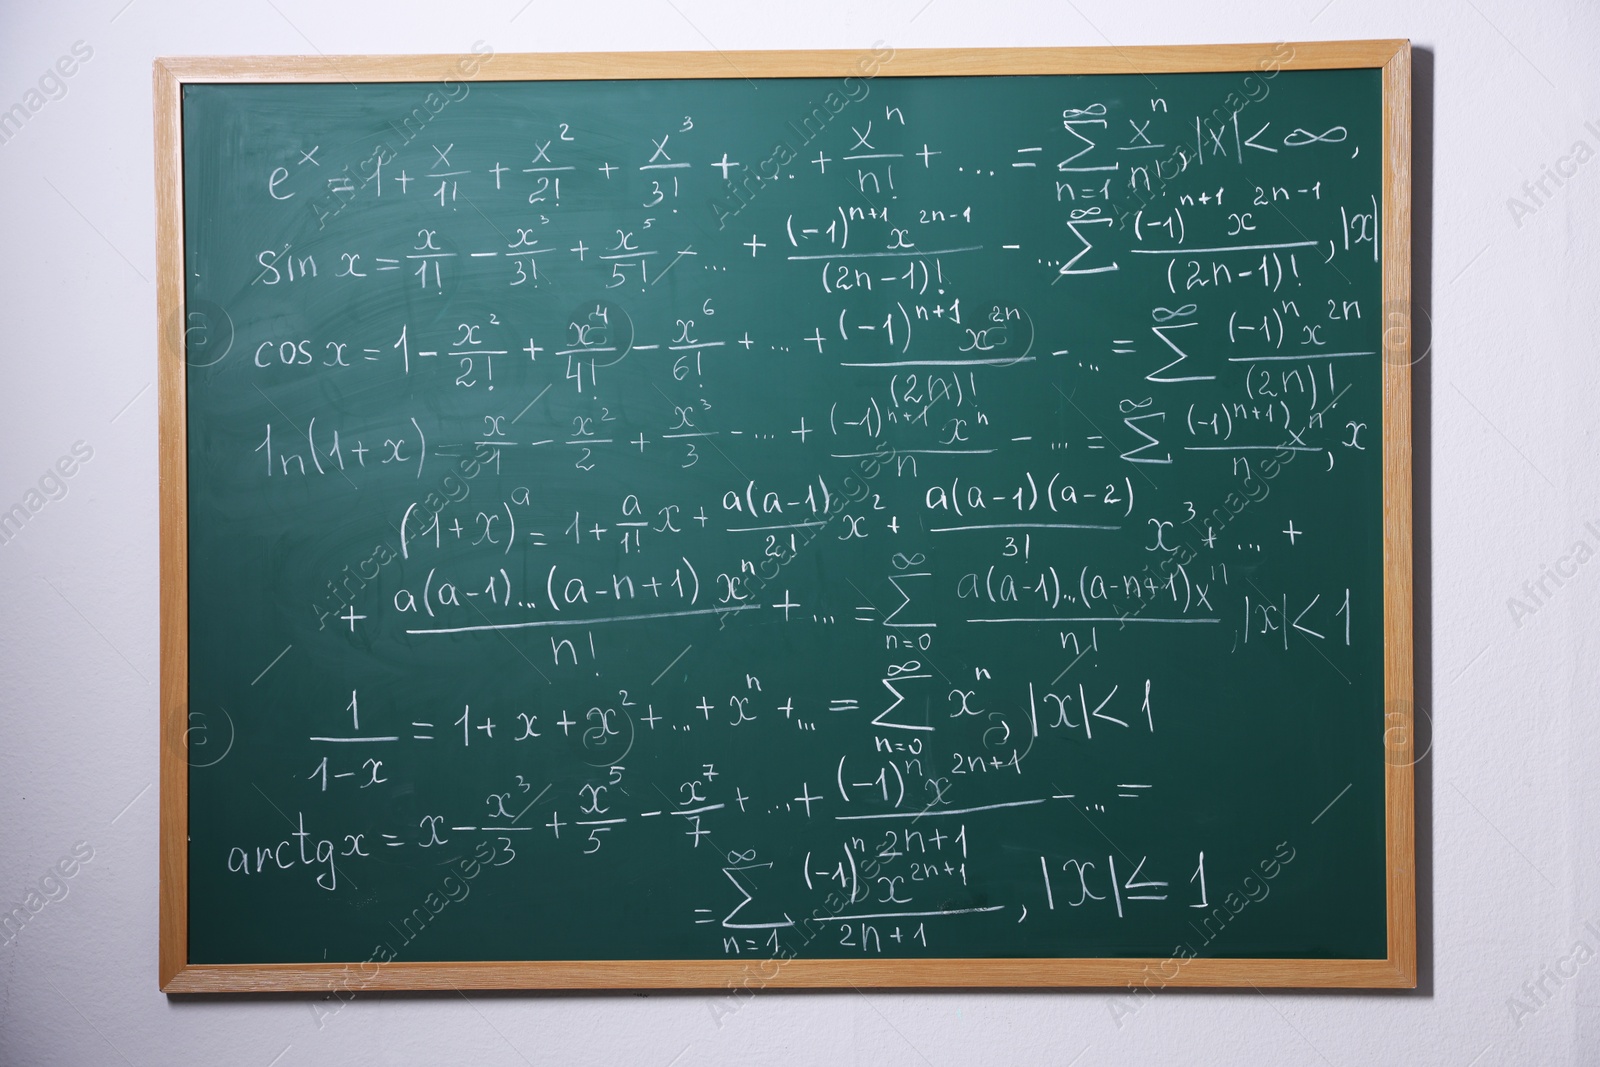 e^x = 1 + x/1! + x^2/2! + x^3/3! + ... + x^n/n! + ... = ∑_{n=1}^{∞} x^n/n!, |x| < ∞,
sin x = x/1! − x^3/3! + x^5/5! − ... + (−1)^{n+1} x^{2n−1}/(2n−1)! − ... ∑^{∞} (−1)^{n+1} x^{2n−1}/(2n−1)!, |x|
cos x = 1 − x^2/2! + x^4/4! − x^6/6! + ... + (−1)^{n+1} x^{2n}/(2n)! − ... = ∑^{∞} (−1)^n x^{2n}/(2n)!
ln(1+x) = x/1 − x^2/2 + x^3/3 − ... + (−1)^{n+1} x^n/n − ... = ∑^{∞} (−1)^{n+1) x^n/n, x
(1+x)^a = 1 + a/1! x + a(a−1)/2! x^2 + a(a−1)(a−2)/3! x^3 + ... +
+ a(a−1)...(a−n+1) x^n/n! + ... = ∑_{n=0}^{∞} a(a−1)...(a−n+1)x^n/n!, |x| < 1
1/(1−x) = 1 + x + x^2 + ... + x^n + ... = ∑_{n=0}^{∞} x^n, |x| < 1
arctg x = x − x^3/3 + x^5/5 − x^7/7 + ... + (−1)^n x^{2n+1}/(2n+1) − ... =
= ∑_{n=1}^{∞} (−1)^n x^{2n+1}/(2n+1), |x| ≤ 1